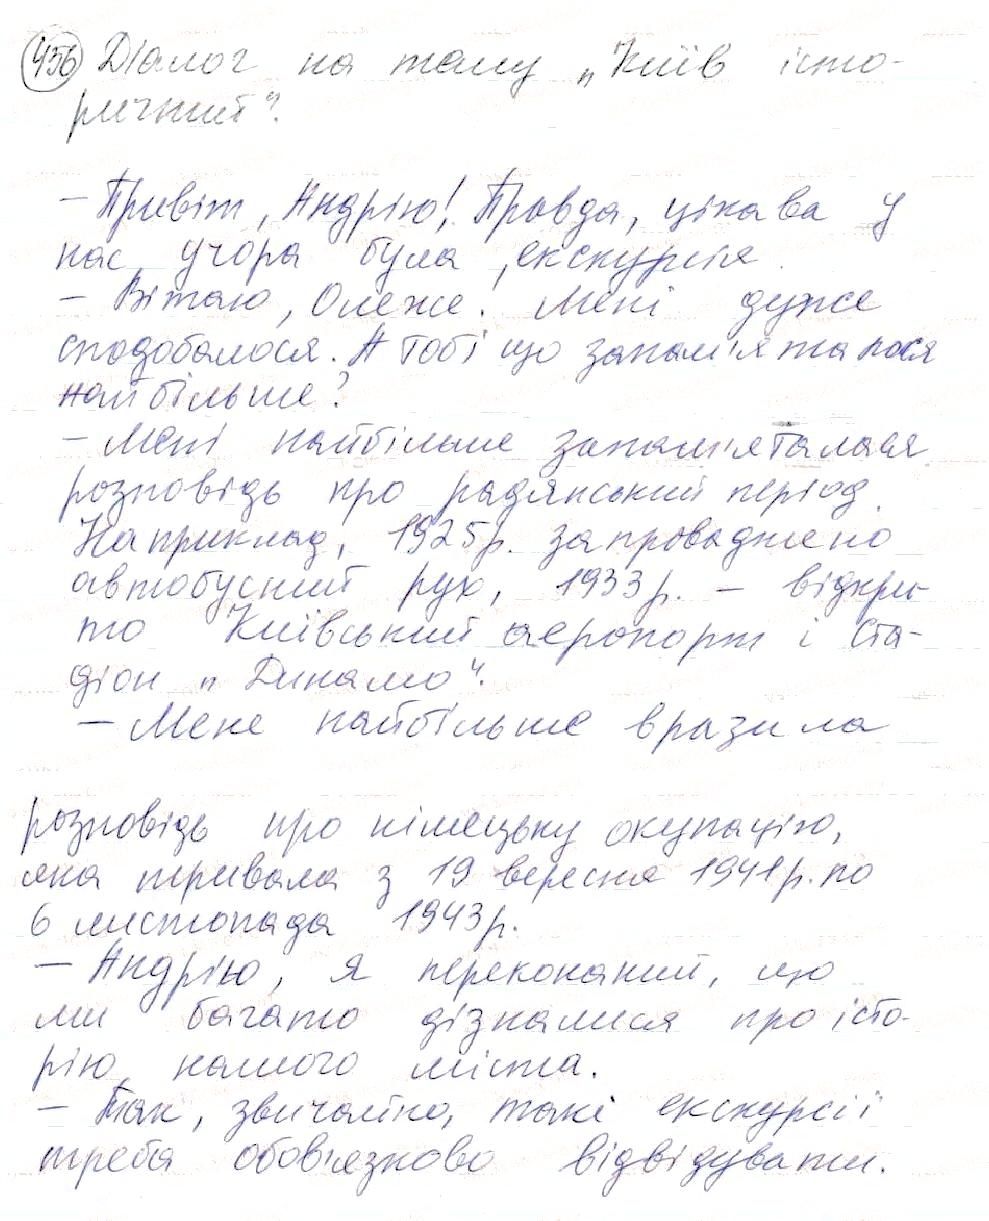 456 Діалог на тему „Київ істо-
ричний".
- Привіт, Андрію! Правда, цікава у
нас учора була екскурсія.
- Вітаю, Олеже. Мені дуже
сподобалося. А тобі що запам'яталося
найбільше?
- Мені найбільше запам'яталася
розповідь про радянський період.
Наприклад, 1925р. запроваджено
автобусний рух, 1933р. - відкри-
то Київський аеропорт і ста-
діон „Динамо".
- Мене найбільше вразила
розповідь про німецьку окупацію,
яка тривала з 19 вересня 1941р. по
6 листопада 1943р.
- Андрію, я переконаний, що
ми багато дізналися про істо-
рію нашого міста.
- Так, звичайно, такі екскурсії
треба обов'язково відвідувати.